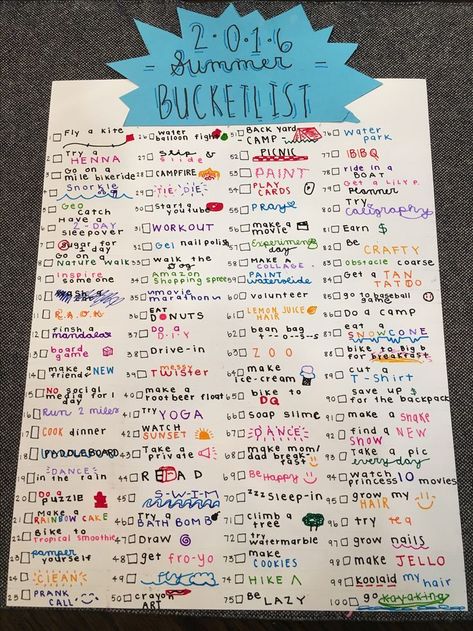 2.0.1.6
Summer
BUCKETLIST
1 Fly a kite
2 Try a HENNA
3 Go on a mile bikeride
4 Snorkle
5 Geo catch
6 Have a 2-DAY sleepover
7 Sugar for a day
8 Go on a Nature walk
9 Inspire someone
11 R.A.O.K
12 finish a mandalas
13 board game
14 make a friend NEW
15 NO social media for 1 day
16 Run 2 miles
17 COOK dinner
18 PADDLEBOARD
19 DANCE in the rain
20 Do a PUZZLE
21 Make a RAINBOW CAKE
22 Bike to Tropical Smoothie
23 pamper yourself
24 CLEAN
25 PRANK CALL
26 water balloon fight
27 slip & slide
28 CAMPFIRE
29 TIE DIE
30 Start a youtube
31 WORKOUT
32 Gel nail polish
33 walk the dog
34 Amazon Shopping spree
35 movie marathon
36 EAT DONUTS
37 Do a D.I.Y
38 Drive-in
39 messy TWISTER
40 make a rootbeer float
41 Try YOGA
42 WATCH SUNSET
43 Take a private
44 READ
45 S-W-I-M
46 Try a BATH BOMB
47 Draw
48 get fro-yo
49
50 crayon ART
51 BACK yard -CAMP-
52 PICNIC
53 PAINT
54 PLAY CARDS
55 Pray
56 make a movie
57 Experiment day
58 MAKE A COLLAGE
59 PAINT waterslide
60 volunteer
61 LEMON JUICE HAIR
62 bean bag t-o-s-s
63 ZOO
64 make ice-cream
65 bike to DQ
66 soap slime
67 DANCE
68 make mom/dad breakfast
69 Be Happy
70 zzz sleep-in
71 climb a tree
72 Try watermarble
73 make COOKIES
74 HIKE
75 Be LAZY
76 Water park
77 BBQ
78 ride in a Boat
79 Get a Lily P. Planner
80 Try Caligraphy
81 Earn $
82 Be CRAFTY
83 obstacle coarse
84 Get a TAN TATOO
85 go to baseball game
86 Do a camp
87 eat a SNOWCONE
88 bike to Big B for breakfast
89 cut a T-shirt
90 save up $ for the backpack
91 make a shake
92 find a NEW show
93 Take a pic everyday
94 Watch princess 10 movies
95 grow my
96 try tea
97 grow nails
98 make JELLO
99 koolaid my hair
100 go kayaking